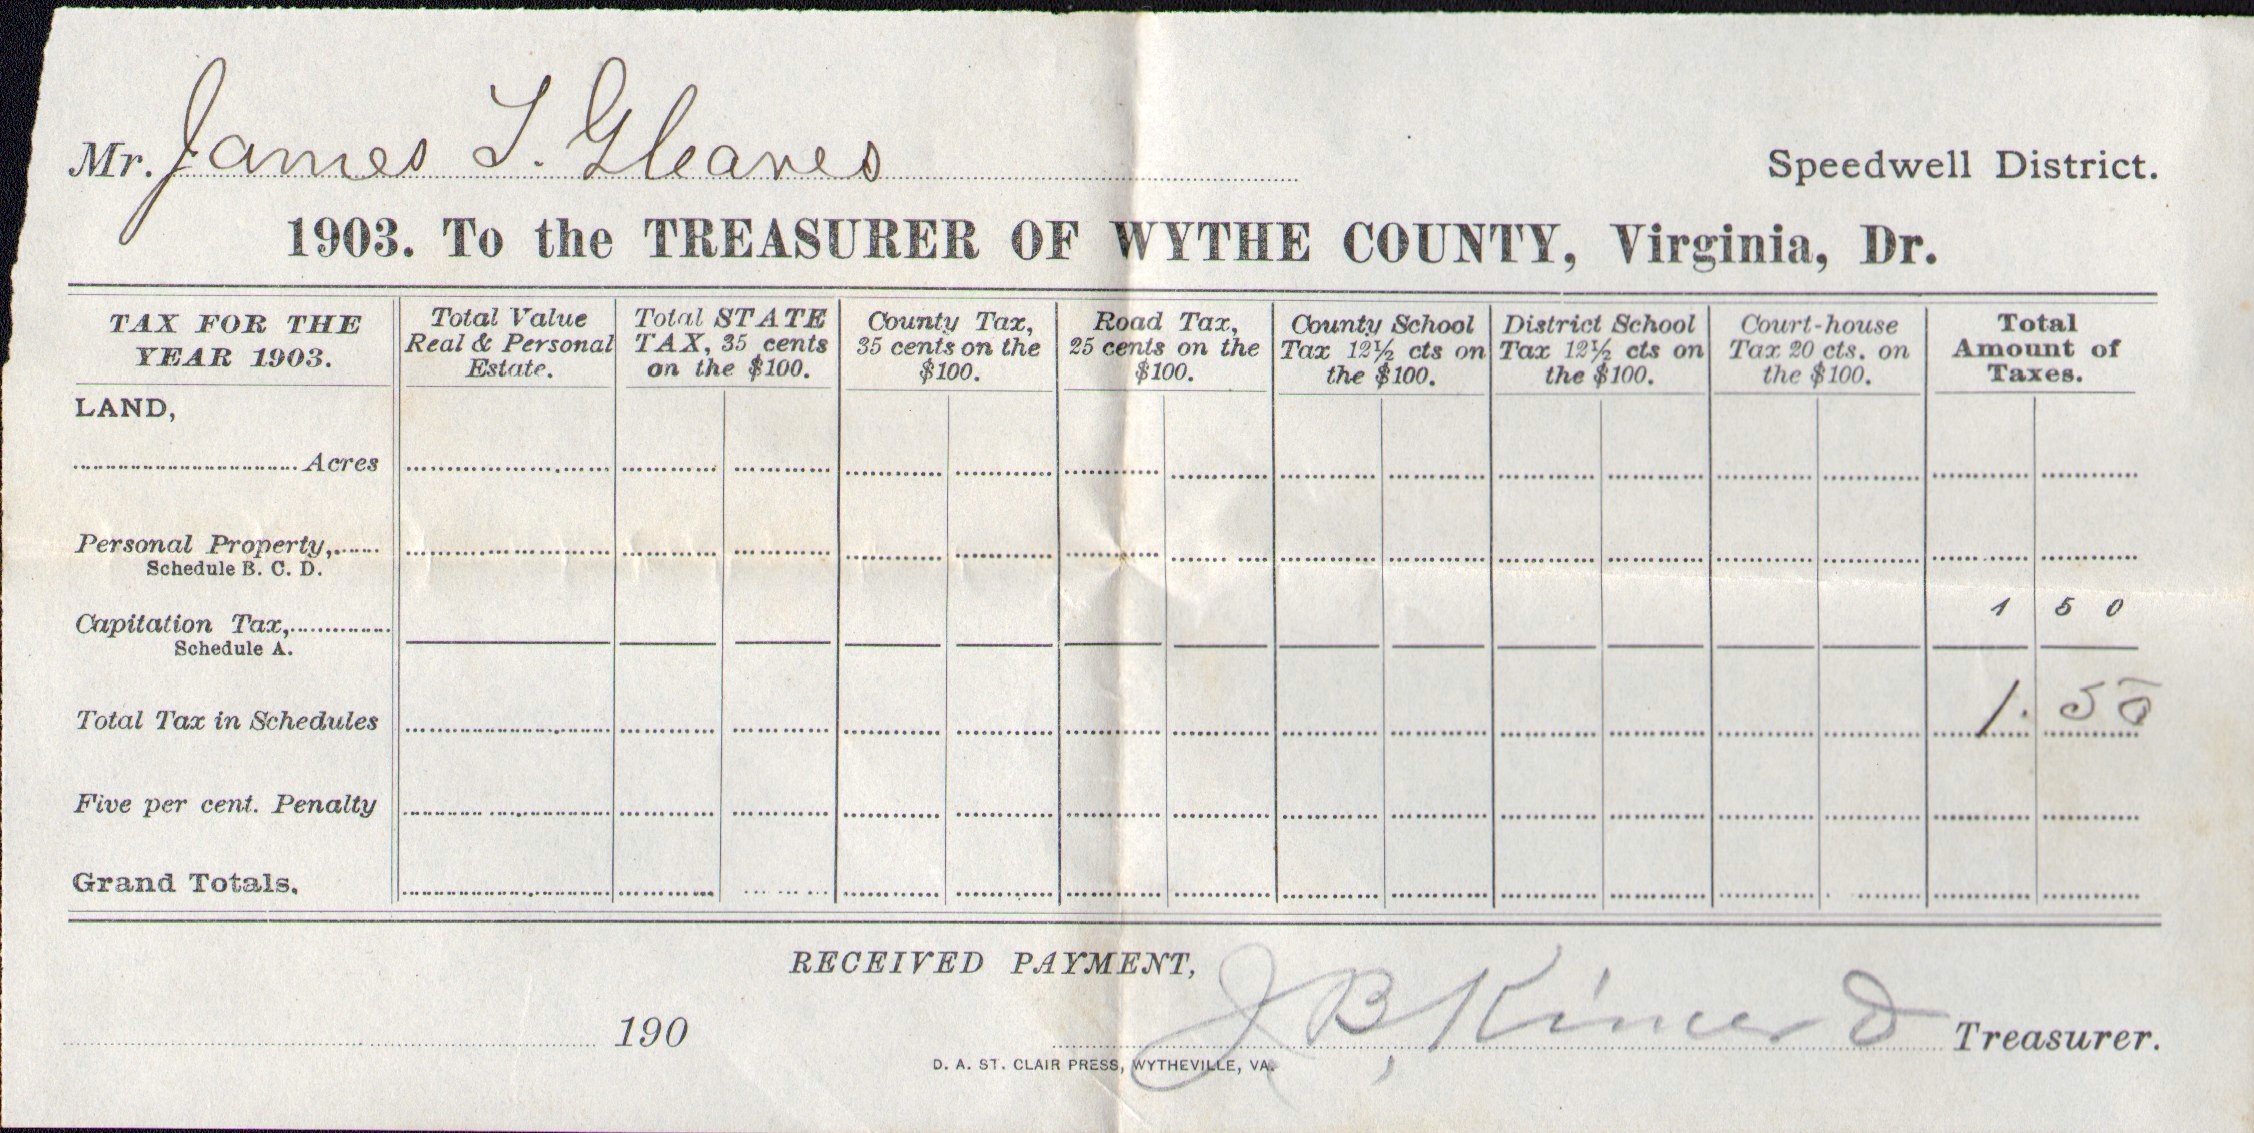 Mr. James T. Gleaves
Speedwell District.
1903. To the TREASURER OF WYTHE COUNTY, Virginia, Dr.
TAX FOR THE YEAR 1903.
Total Value Real & Personal Estate.
Total STATE TAX, 35 cents on the $100.
County Tax, 35 cents on the $100.
Road Tax, 25 cents on the $100.
County School Tax 12½ cts on the $100.
District School Tax 12½ cts on the $100.
Court-house Tax 20 cts. on the $100.
Total Amount of Taxes.
LAND,
Acres
Personal Property,
Schedule B. C. D.
Capitation Tax, 1 50
Schedule A.
Total Tax in Schedules 1. 50
Five per cent. Penalty
Grand Totals.
RECEIVED PAYMENT,
190 J B Kincer D Treasurer.
D. A. ST. CLAIR PRESS, WYTHEVILLE, VA.